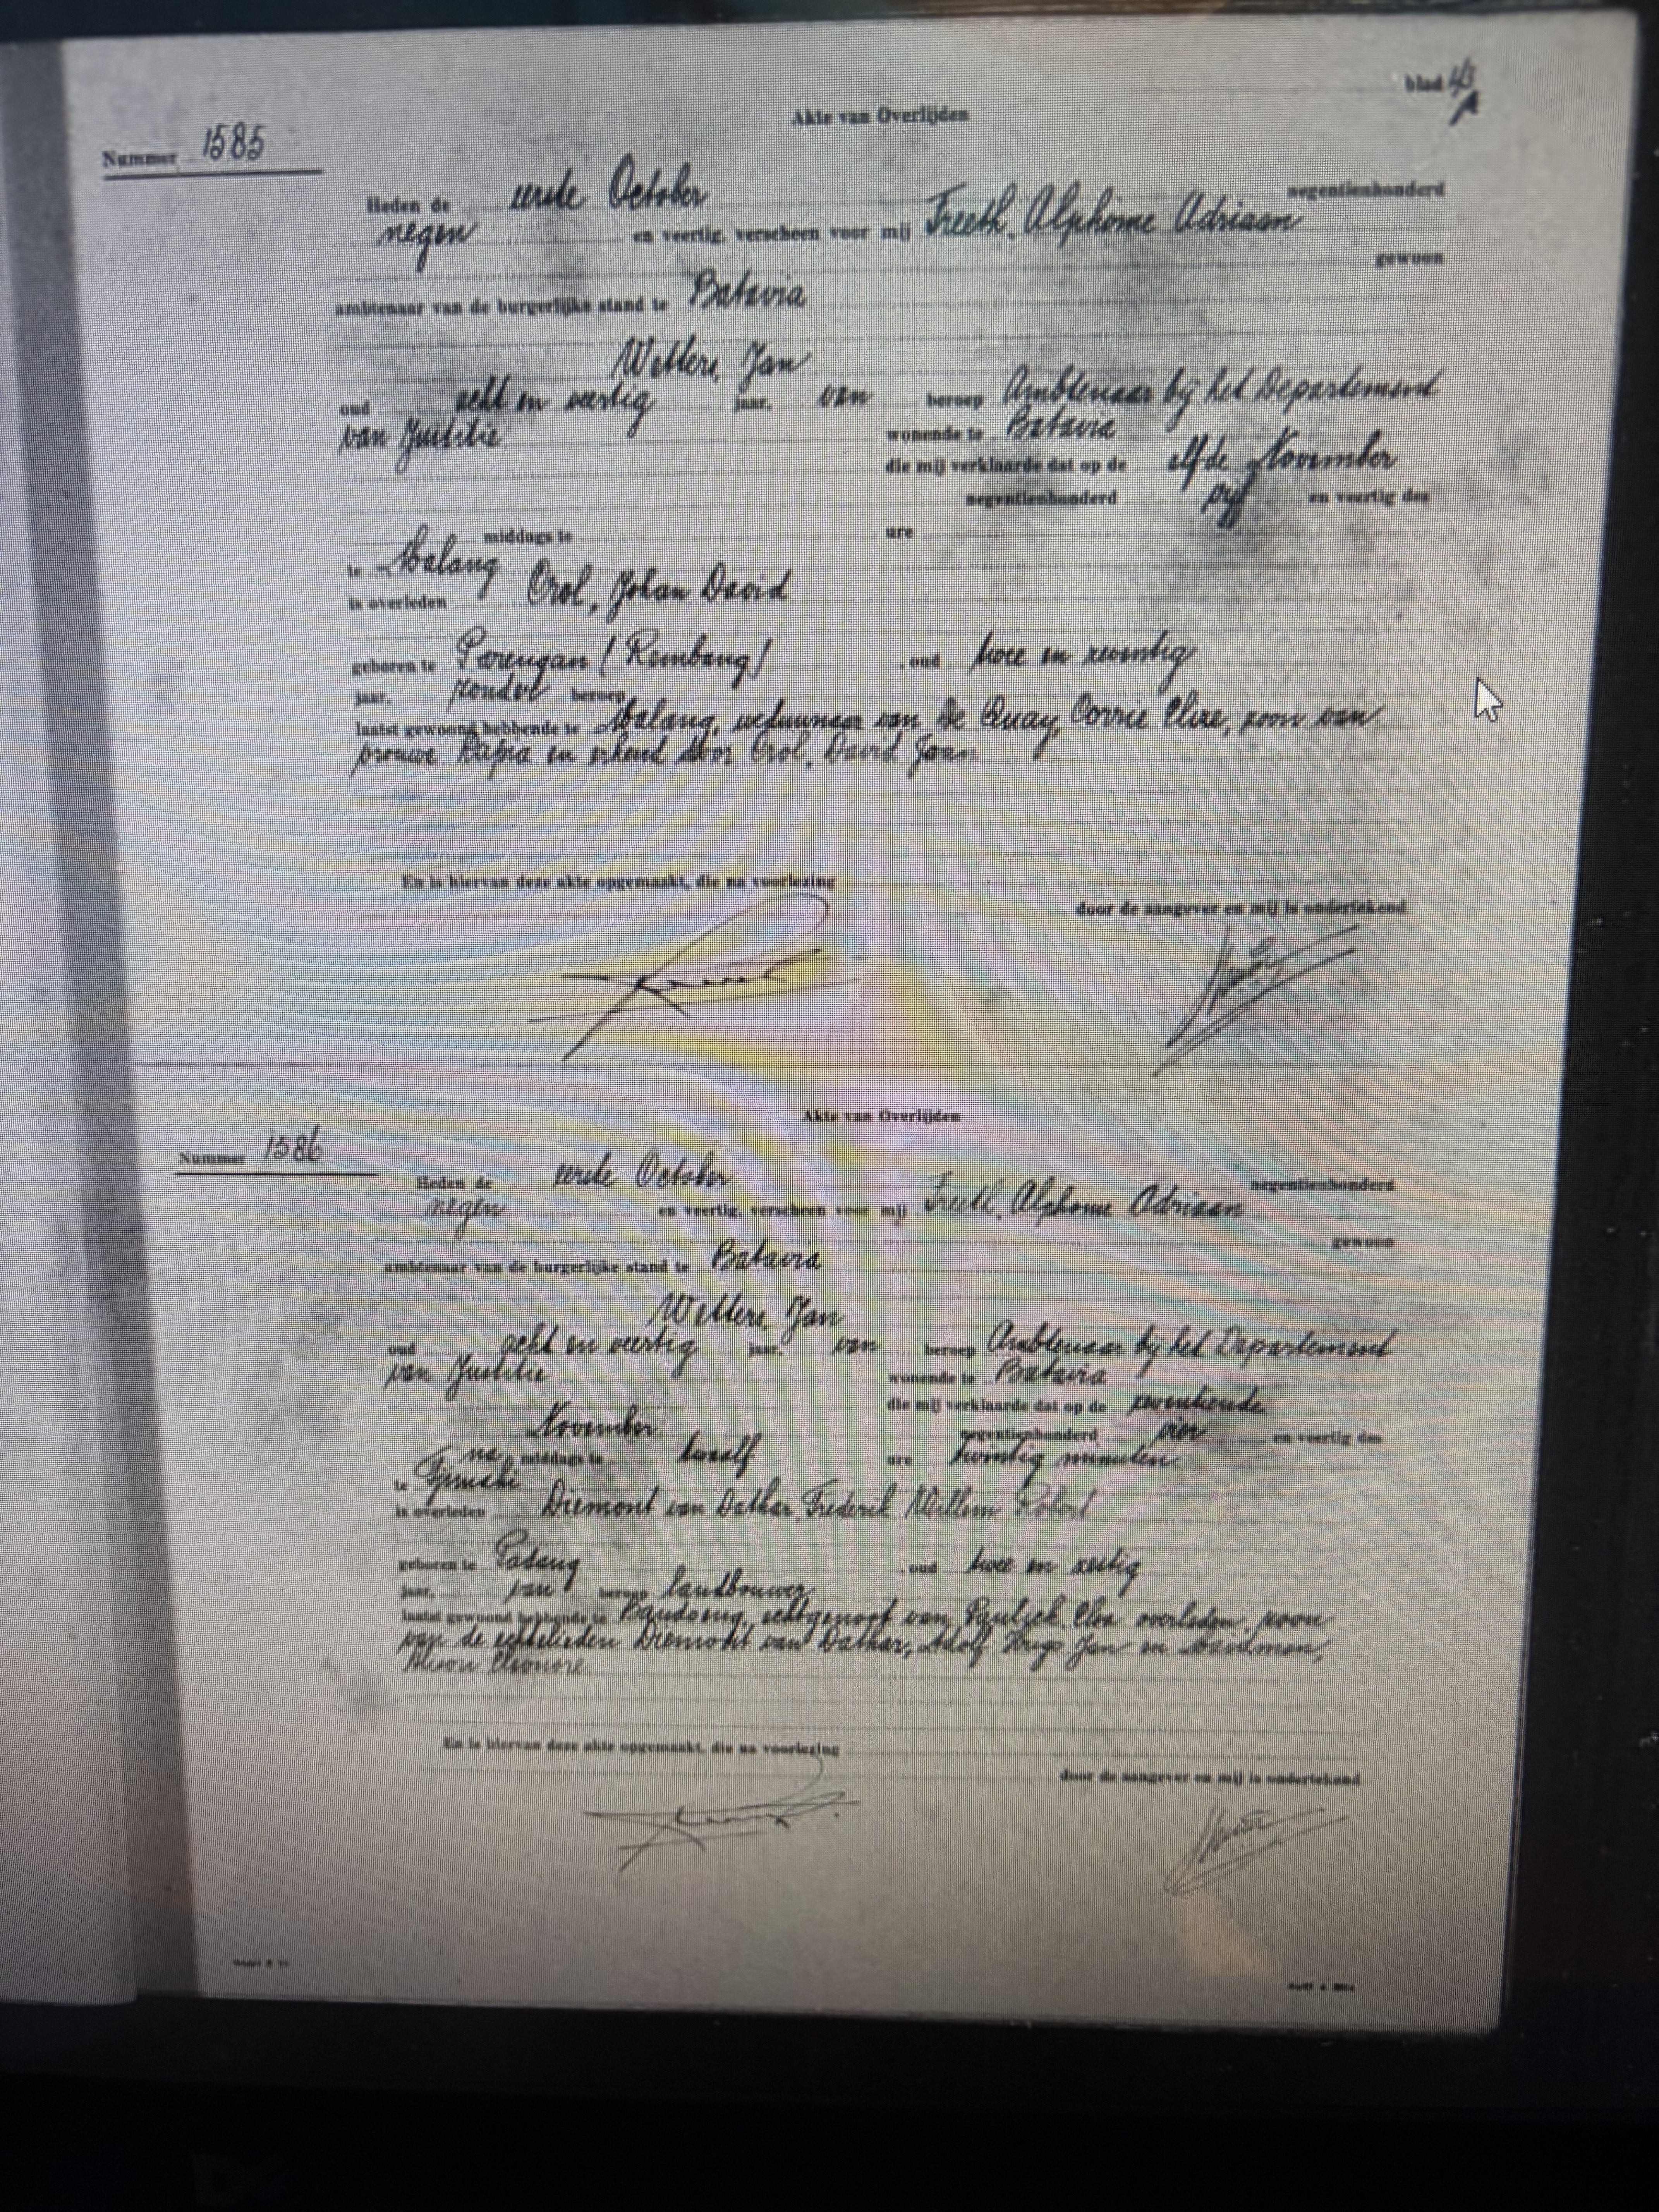 blad 43
Akte van Overlijden
Nummer 1585
Heden de eerste October negentienhonderd
negen en veertig, verscheen voor mij Freeth, Alphonse Adriaan
gewoon
ambtenaar van de burgerlijke stand te Batavia
Welters, Jan
oud acht en veertig jaar, van beroep Ambtenaar bij het Departement
van Justitie wonende te Batavia
die mij verklaarde dat op de elfde November
negentienhonderd vyf en veertig des
middags te ure
te Malang
is overleden Crol, Johan David
geboren te Parengan / Rembang / , oud twee en zeventig
jaar, zonder beroep
laatst gewoond hebbende te Malang, weduwnaar van De Quay, Corrie Elize, zoon van
vrouwe en erkend door Crol, David Joan
En is hiervan deze akte opgemaakt, die na voorlezing
door de aangever en mij is ondertekend
Akte van Overlijden
Nummer 1586
Heden de eerste October negentienhonderd
negen en veertig, verscheen voor mij Freeth, Alphonse Adriaan
gewoon
ambtenaar van de burgerlijke stand te Batavia
Welters, Jan
oud acht en veertig jaar, van beroep Ambtenaar bij het Departement
van Justitie wonende te Batavia
die mij verklaarde dat op de zeventiende
November negentienhonderd vier en veertig des
na middags te twaalf ure twintig minuten
te Tjimahi
is overleden Diemont van Dathar, Frederik Willem Robert
geboren te Padang , oud twee en zestig
jaar, van beroep landbouwer
laatst gewoond hebbende te Bandoeng, echtgenoot van overleden, zoon
van de echtelieden Diemont van Dathar, Adolf Hugo Jan en
Eleonore
En is hiervan deze akte opgemaakt, die na voorlezing
door de aangever en mij is ondertekend